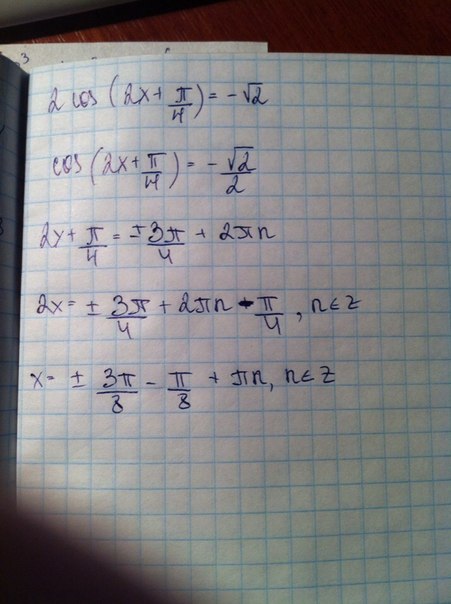 2 cos (2x + π/4) = -√2
cos (2x + π/4) = -√2/2
2x + π/4 = ± 3π/4 + 2πn
2x = ± 3π/4 + 2πn - π/4, n ∈ z
x = ± 3π/8 - π/8 + πn, n ∈ z